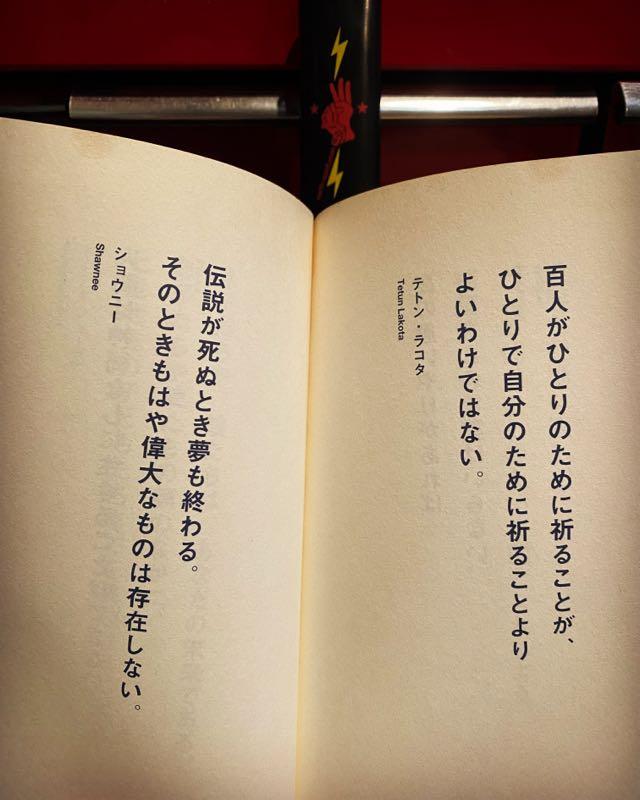 百人がひとりのために祈ることが、
ひとりで自分のために祈ることより
よいわけではない。
テトン・ラコタ
Tetun Lakota
伝説が死ぬとき夢も終わる。
そのときもはや偉大なものは存在しない。
ショウニー
Shawnee